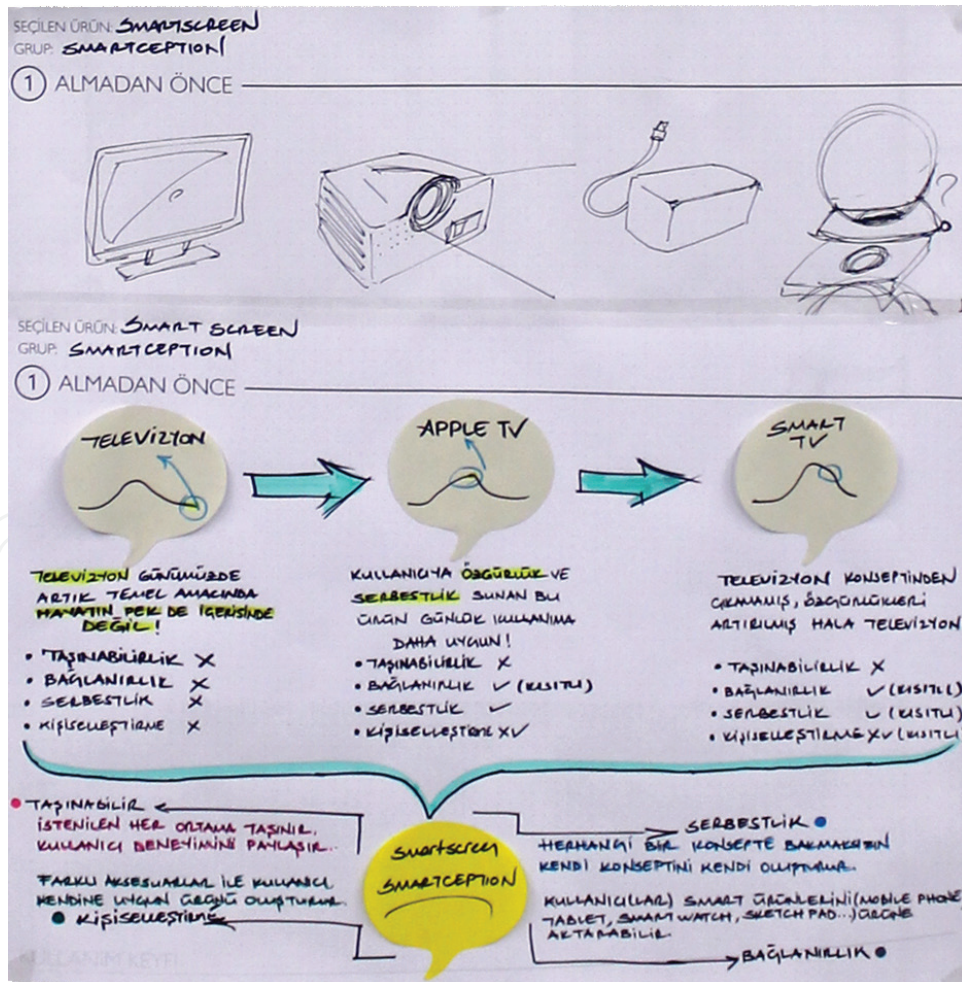 SEÇİLEN ÜRÜN: SMARTSCREEN
GRUP: SMARTCEPTION
1 ALMADAN ÖNCE
?
SEÇİLEN ÜRÜN: SMART SCREEN
GRUP: SMARTCEPTION
1 ALMADAN ÖNCE
TELEVİZYON
APPLE TV
SMART
TV
TELEVİZYON GÜNÜMÜZDE
ARTIK TEMEL AMACINDA
HAYATIN PEK DE İÇERİSİNDE
DEĞİL!
• TAŞINABİLİRLİK X
• BAĞLANIRLIK X
• SERBESTLİK X
• KİŞİSELLEŞTİRME X
KULLANICIYA ÖZGÜRLÜK VE
SERBESTLİK SUNAN BU
ÜRÜN GÜNLÜK KULLANIMA
DAHA UYGUN!
• TAŞINABİLİRLİK X
• BAĞLANIRLIK ✓ (KISITLI)
• SERBESTLİK ✓
• KİŞİSELLEŞTİRME X✓
TELEVİZYON KONSEPTİNDEN
ÇIKAMAMIŞ, ÖZGÜRLÜKLERİ
ARTIRILMIŞ HALA TELEVİZYON
• TAŞINABİLİRLİK X
• BAĞLANIRLIK ✓ (KISITLI)
• SERBESTLİK ✓ (KISITLI)
• KİŞİSELLEŞTİRME X✓ (KISITLI)
• TAŞINABİLİR
İSTENİLEN HER ORTAMA TAŞINIR,
KULLANICI DENEYİMİNİ PAYLAŞIR..
FARKLI AKSESUARLAR İLE KULLANICI
KENDİNE UYGUN ÜRÜNÜ OLUŞTURUR.
• KİŞİSELLEŞTİRME
smartscreen
SMARTCEPTION
SERBESTLİK •
HERHANGİ BİR KONSEPTE BAKMAKSIZIN
KENDİ KONSEPTİNİ KENDİ OLUŞTURUR.
KULLANICI(LAR) SMART ÜRÜNLERİNİ (MOBILE PHONE,
TABLET, SMART WATCH, SKETCH PAD...) ÜRÜNE
AKTARABİLİR
BAĞLANIRLIK •
KULLANIM KEYFİ